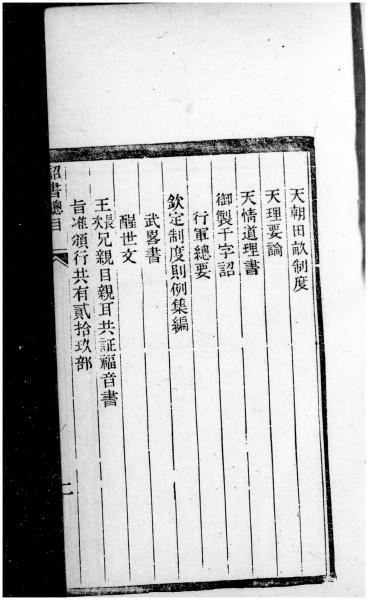 天朝田畝制度
天理要論
天情道理書
御製千字詔
行軍總要
欽定制度則例集編
武畧書
醒世文
王長兄親目親耳共証福音書
旨准頒行共有貳拾玖部
詔書總目